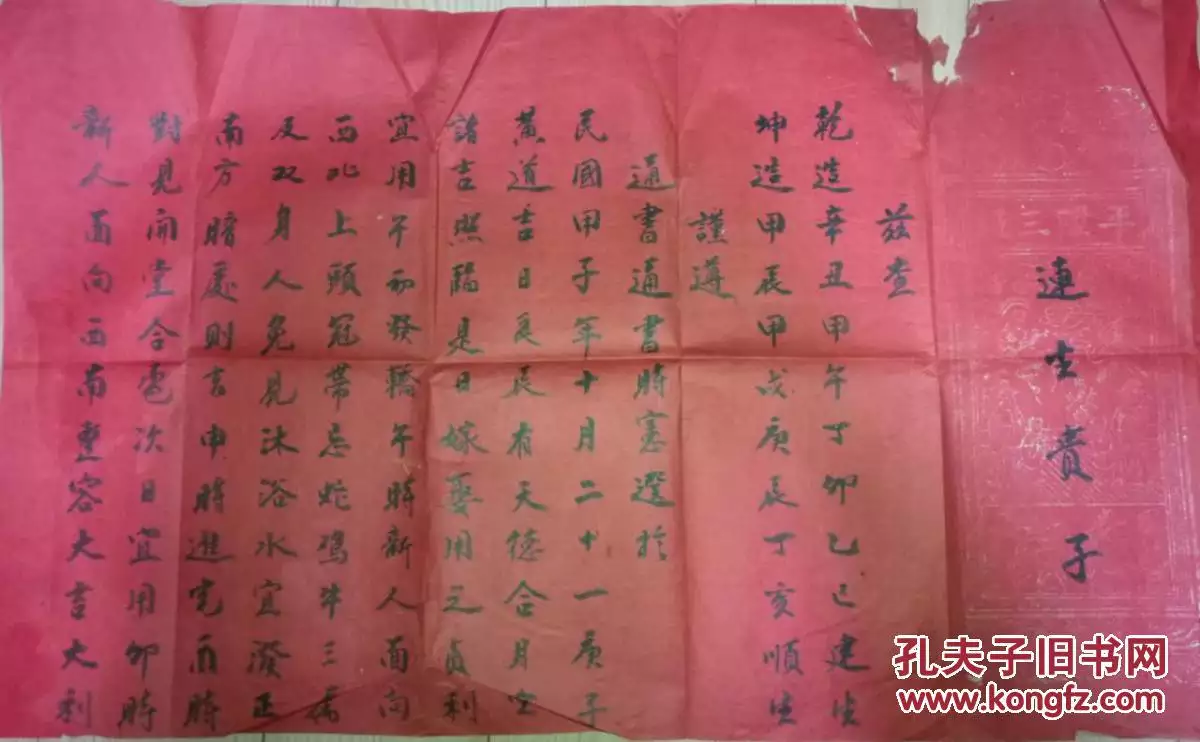 連生貴子
茲查
乾造辛丑甲午丁卯乙巳建生
坤造甲辰甲戌庚辰丁亥順生
謹遵
通書通書時憲選於
民國甲子年十月二十一庚子
黃道吉日良辰有天德合月空
諸吉照臨是日嫁娶用之貞利
宜用午初發轎午時新人面向
西北上頭冠帶忌蛇鸡牛三属
及双身人免見沐浴水宜潑正
南方暗處則吉申時進宅酉時
對見開堂合卺次日宜用卯時
新人面向西南整容大吉大利
孔夫子旧书网
www.kongfz.com